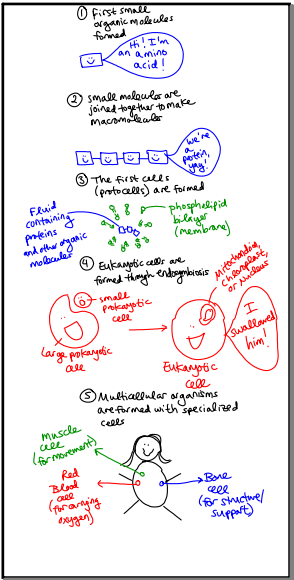 ① First small
organic molecules
formed
Hi! I'm
an amino
acid!
② Small molecules are
joined together to make
macromolecules
we're
a
protein,
yay!
③ The first cells
(protocells) are formed
Fluid
containing
proteins
and other organic
molecules
phospholipid
bilayer
(membrane)
④ Eukaryotic cells are
formed through endosymbiosis
small
prokaryotic
cell
Large prokaryotic
cell
Mitochondria,
Chloroplast,
or Nucleus
Eukaryotic
cell
I
swallowed
him!
⑤ Multicellular organisms
are formed with specialized
cells
Muscle
cell
(for movement)
Red
Blood
cell
(for carrying
oxygen)
Bone
cell
(for structure/
support)